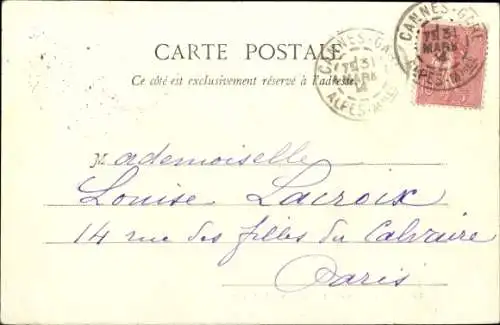 CARTE POSTALE
Ce côté est exclusivement réservé à l'adresse.
CANNES-GARE
7E 31
MARS
ALPES-MMES
CANNES-GARE
7E 31
MARS
ALPES-MMES
Mademoiselle
Louise Lacroix
14 rue des filles du Calvaire
Paris